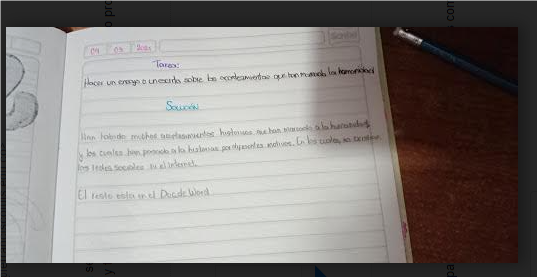 04 03 2021
Tarea:
Hacer un ensayo o un escrito sobre los acontecimientos que han marcado la humanidad
Solución
Han habido muchos acontecimientos históricos que han marcado a la humanidad,
y los cuales han pasado a la historia por diferentes motivos. En los cuales, no existían
las redes sociales ni el internet.
El resto esta en el Doc. de Word